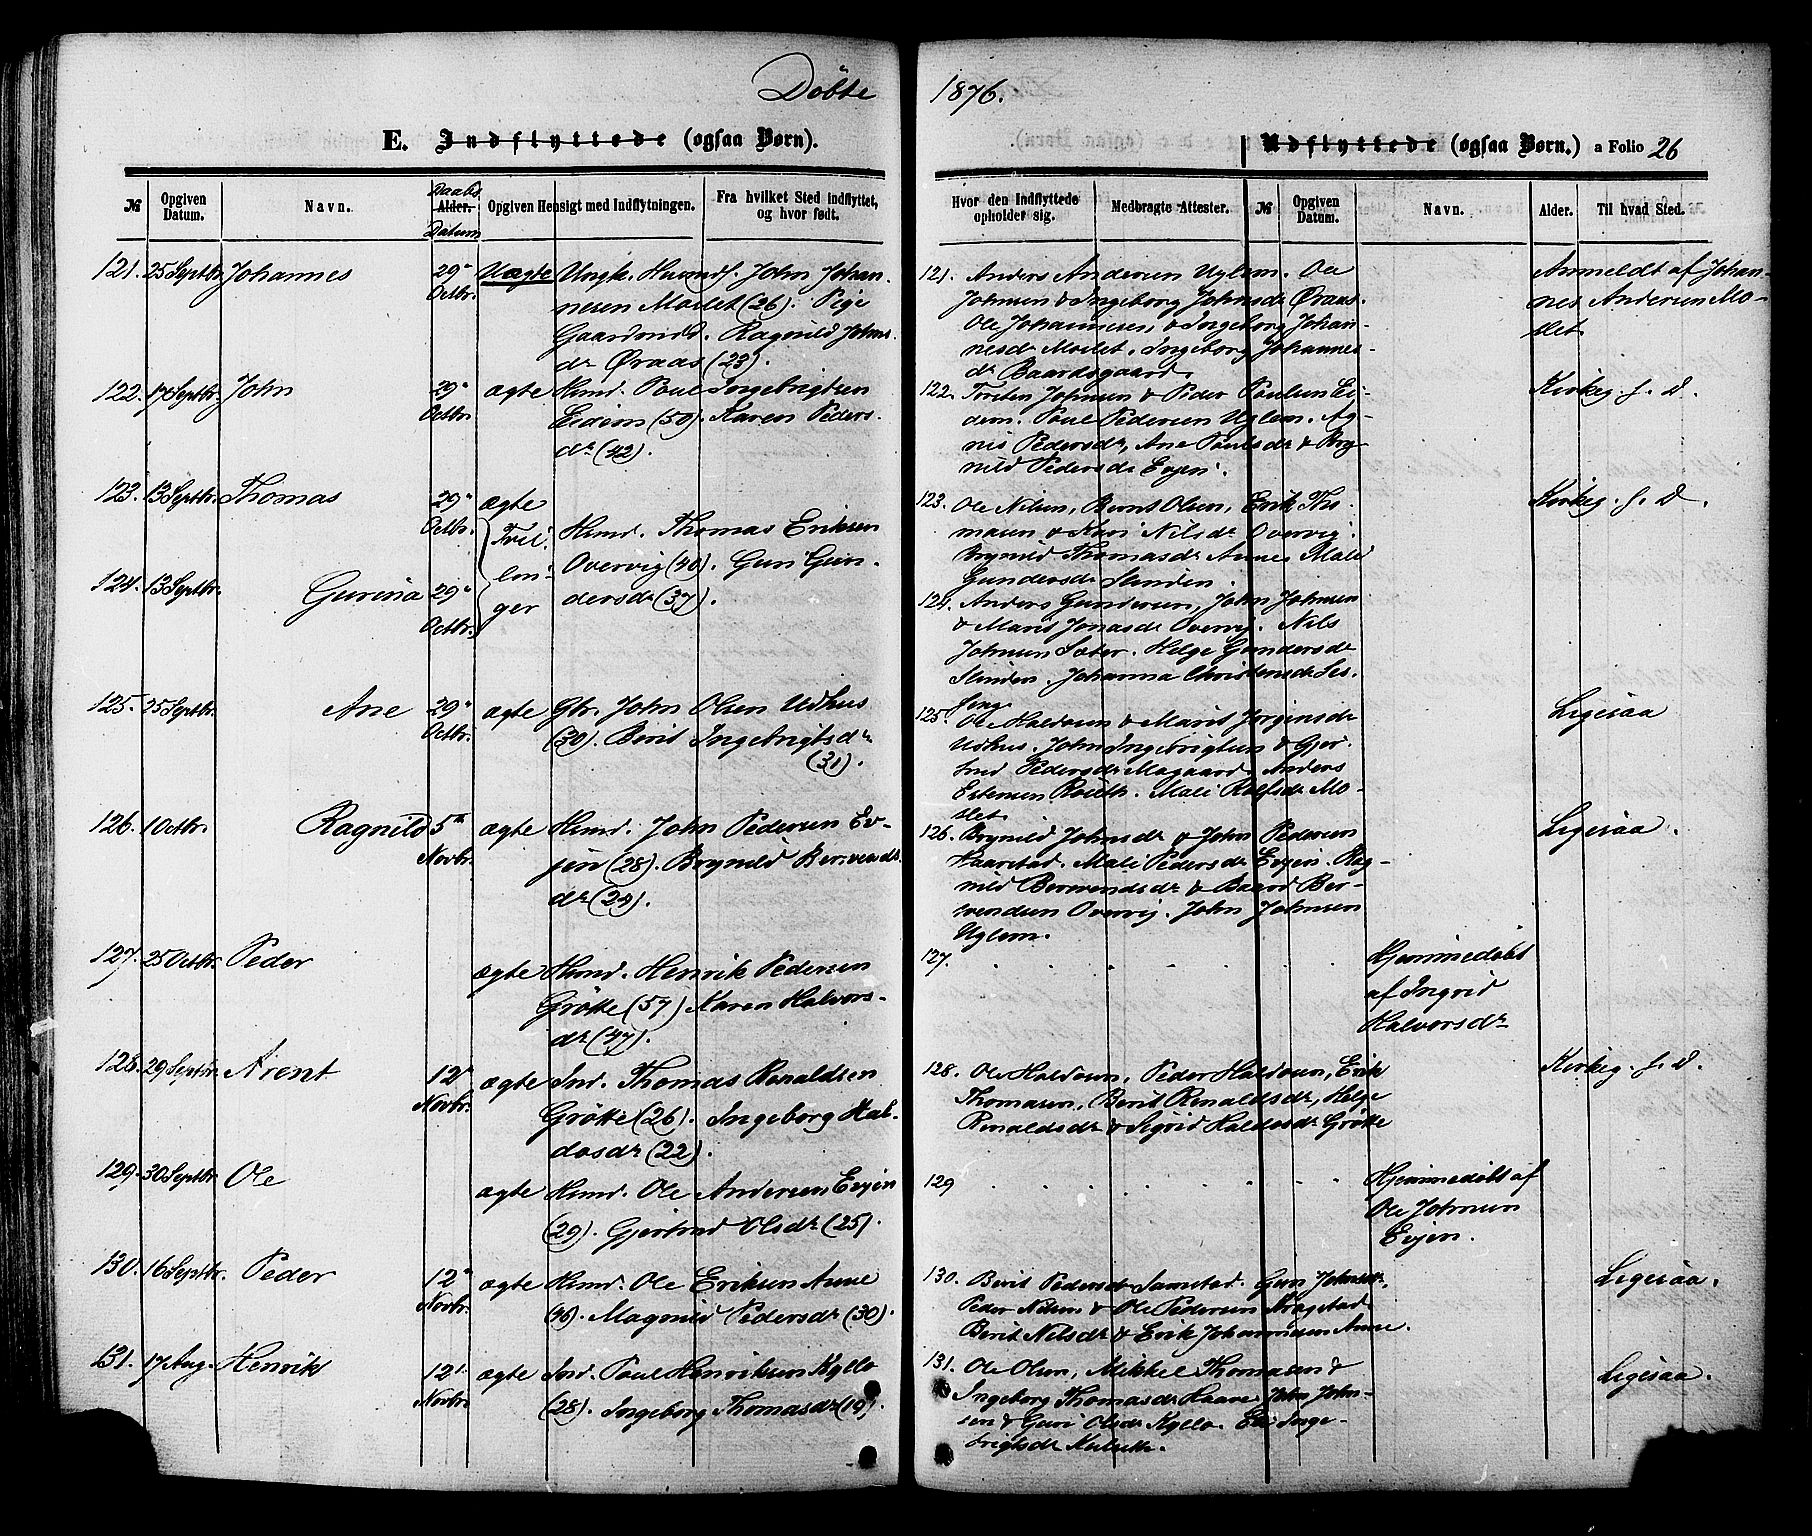 Döbte
1876.
E. Indflyttede (ogsaa Børn).
Udflyttede (ogsaa Børn.) a Folio 26
№ Opgiven Datum. Navn. Daabs Alder. Datum Opgiven Hensigt med Indflytningen. Fra hvilket Sted indflyttet, og hvor født.
Hvor den Indflyttede opholder sig. Medbragte Attester. № Opgiven Datum. Navn. Alder. Til hvad Sted.
121. 25 Septbr. Johannes 29 Octbr. Uægte Ungk. Huusmdf. John Johan-
nesen Moslet (26). Pige
Gaardmd. Ragnild Johns
dr Øraas (23).
122. 17 Septbr. John 29 Octbr. ægte Hmd. Poul Ingebrigtsen
Eidem (50). Karen Peders
dr (42).
123. 13 Septbr. Thomas 29 Octbr. ægte
Tvil-
lin-
ger
Hmd. Thomas Eriksen
Overvig (40). Guri Gun-
dersdr (37).
124. 13 Septbr. Gurina 29 Octbr.
125. 25 Septbr. Ane 29 Octbr. ægte Gbr. John Olsen Udhus
(30). Berit Ingebrigtsdr
(31).
126. 1 Octbr. Ragnild 5 Novbr. ægte Hmd. John Pedersen Ev-
jen (28). Brynild Bersvends
dr (24).
127. 25 Octbr. Peder ægte Hmd. Henrik Pedersen
Grötte (57) Karen Halvors-
dr (47).
128. 29 Septbr. Arent 12 Novbr. ægte Ind. Thomas Renaldsen
Grötte (26). Ingeborg Hal-
dosdr (22).
129. 30 Septbr. Ole ægte Hmd. Ole Andersen Evjen
(29). Gjertrud Olsdr (25).
130. 16 Septbr. Peder 12 Novbr. ægte Hmd. Ole Eriksen Aune
(46). Magnild Pedersdr (30).
131. 17 Aug. Henrik 12 Novbr. ægte Ind. Paul Henriksen Kyllo
(28). Ingeborg Thomasdr (19).
121. Anders Andersen Uglem. Ole
Johnsen & Ingeborg Johnsdr Øraas.
Ole Johannesen, & Ingeborg Johan-
nesdr Moslet. Ingeborg Johannes-
dr Baardsgaard.
Anmeldt af Johan-
nes Andersen Mo-
slet
122. Torsten Johnsen & Peder Paulsen Ei-
dem. Paul Pedersen Uglem. Ag-
nis Pedersdr, Ane Paulsdr & Bry-
nild Pedersdr Evjen.
Kirkeg. f. D.
123. Ole Nilsen, Bernt Olsen, Erik Tho-
masen & Kari Nilsdr Overvig.
Brynild Thomasdr Aune. Mali
Gundersdr Slinden.
Kirkeg. f. D.
124. Anders Gundersen, John Johnsen
& Marit Jonasdr Overvig. Nils
Johnsen Sæter. Helge Gundersdr
Slinden. Johanna Christensdr Ses-
seng
125. Ole Haldosen & Marit Jørginsdr
Udhus. John Ingebrigtsen & Gjer-
trud Pedersdr Mogaard. Anders
Estensen Rolseth. Mali Rolfsdr Mo-
slet
Ligesaa
126. Brynild Johnsdr & John Pedersen
Haarstad. Mali Pedersdr Evjen. Rag-
nild Bersvendsdr & Baard Ber-
svendsen Overvig. John Johnsen
Uglem.
Ligesaa.
127. Hjemmedöbt
af Ingrid
Halvorsdr
128. Ole Haldosen, Peder Haldosen, Erik
Thomasen, Berit Renaldsdr, Helge
Renaldsdr & Sigrid Haldosdr Grötte
Kirkeg. f. D.
129 Hjemmedöbt af
Ole Johnsen
Evjen.
130. Berit Pedersdr Samstad. Guri Johnsdr,
Peder Nilsen & Ole Pedersen Kragstad.
Berit Nilsdr & Erik Johannesen Aune.
Ligesaa.
131. Ole Olsen, Mikkel Thomasen &
Ingeborg Thomasdr Haave. John John-
sen & Guri Olsdr Kyllo. Eli Inge-
brigtsdr
Ligesaa.